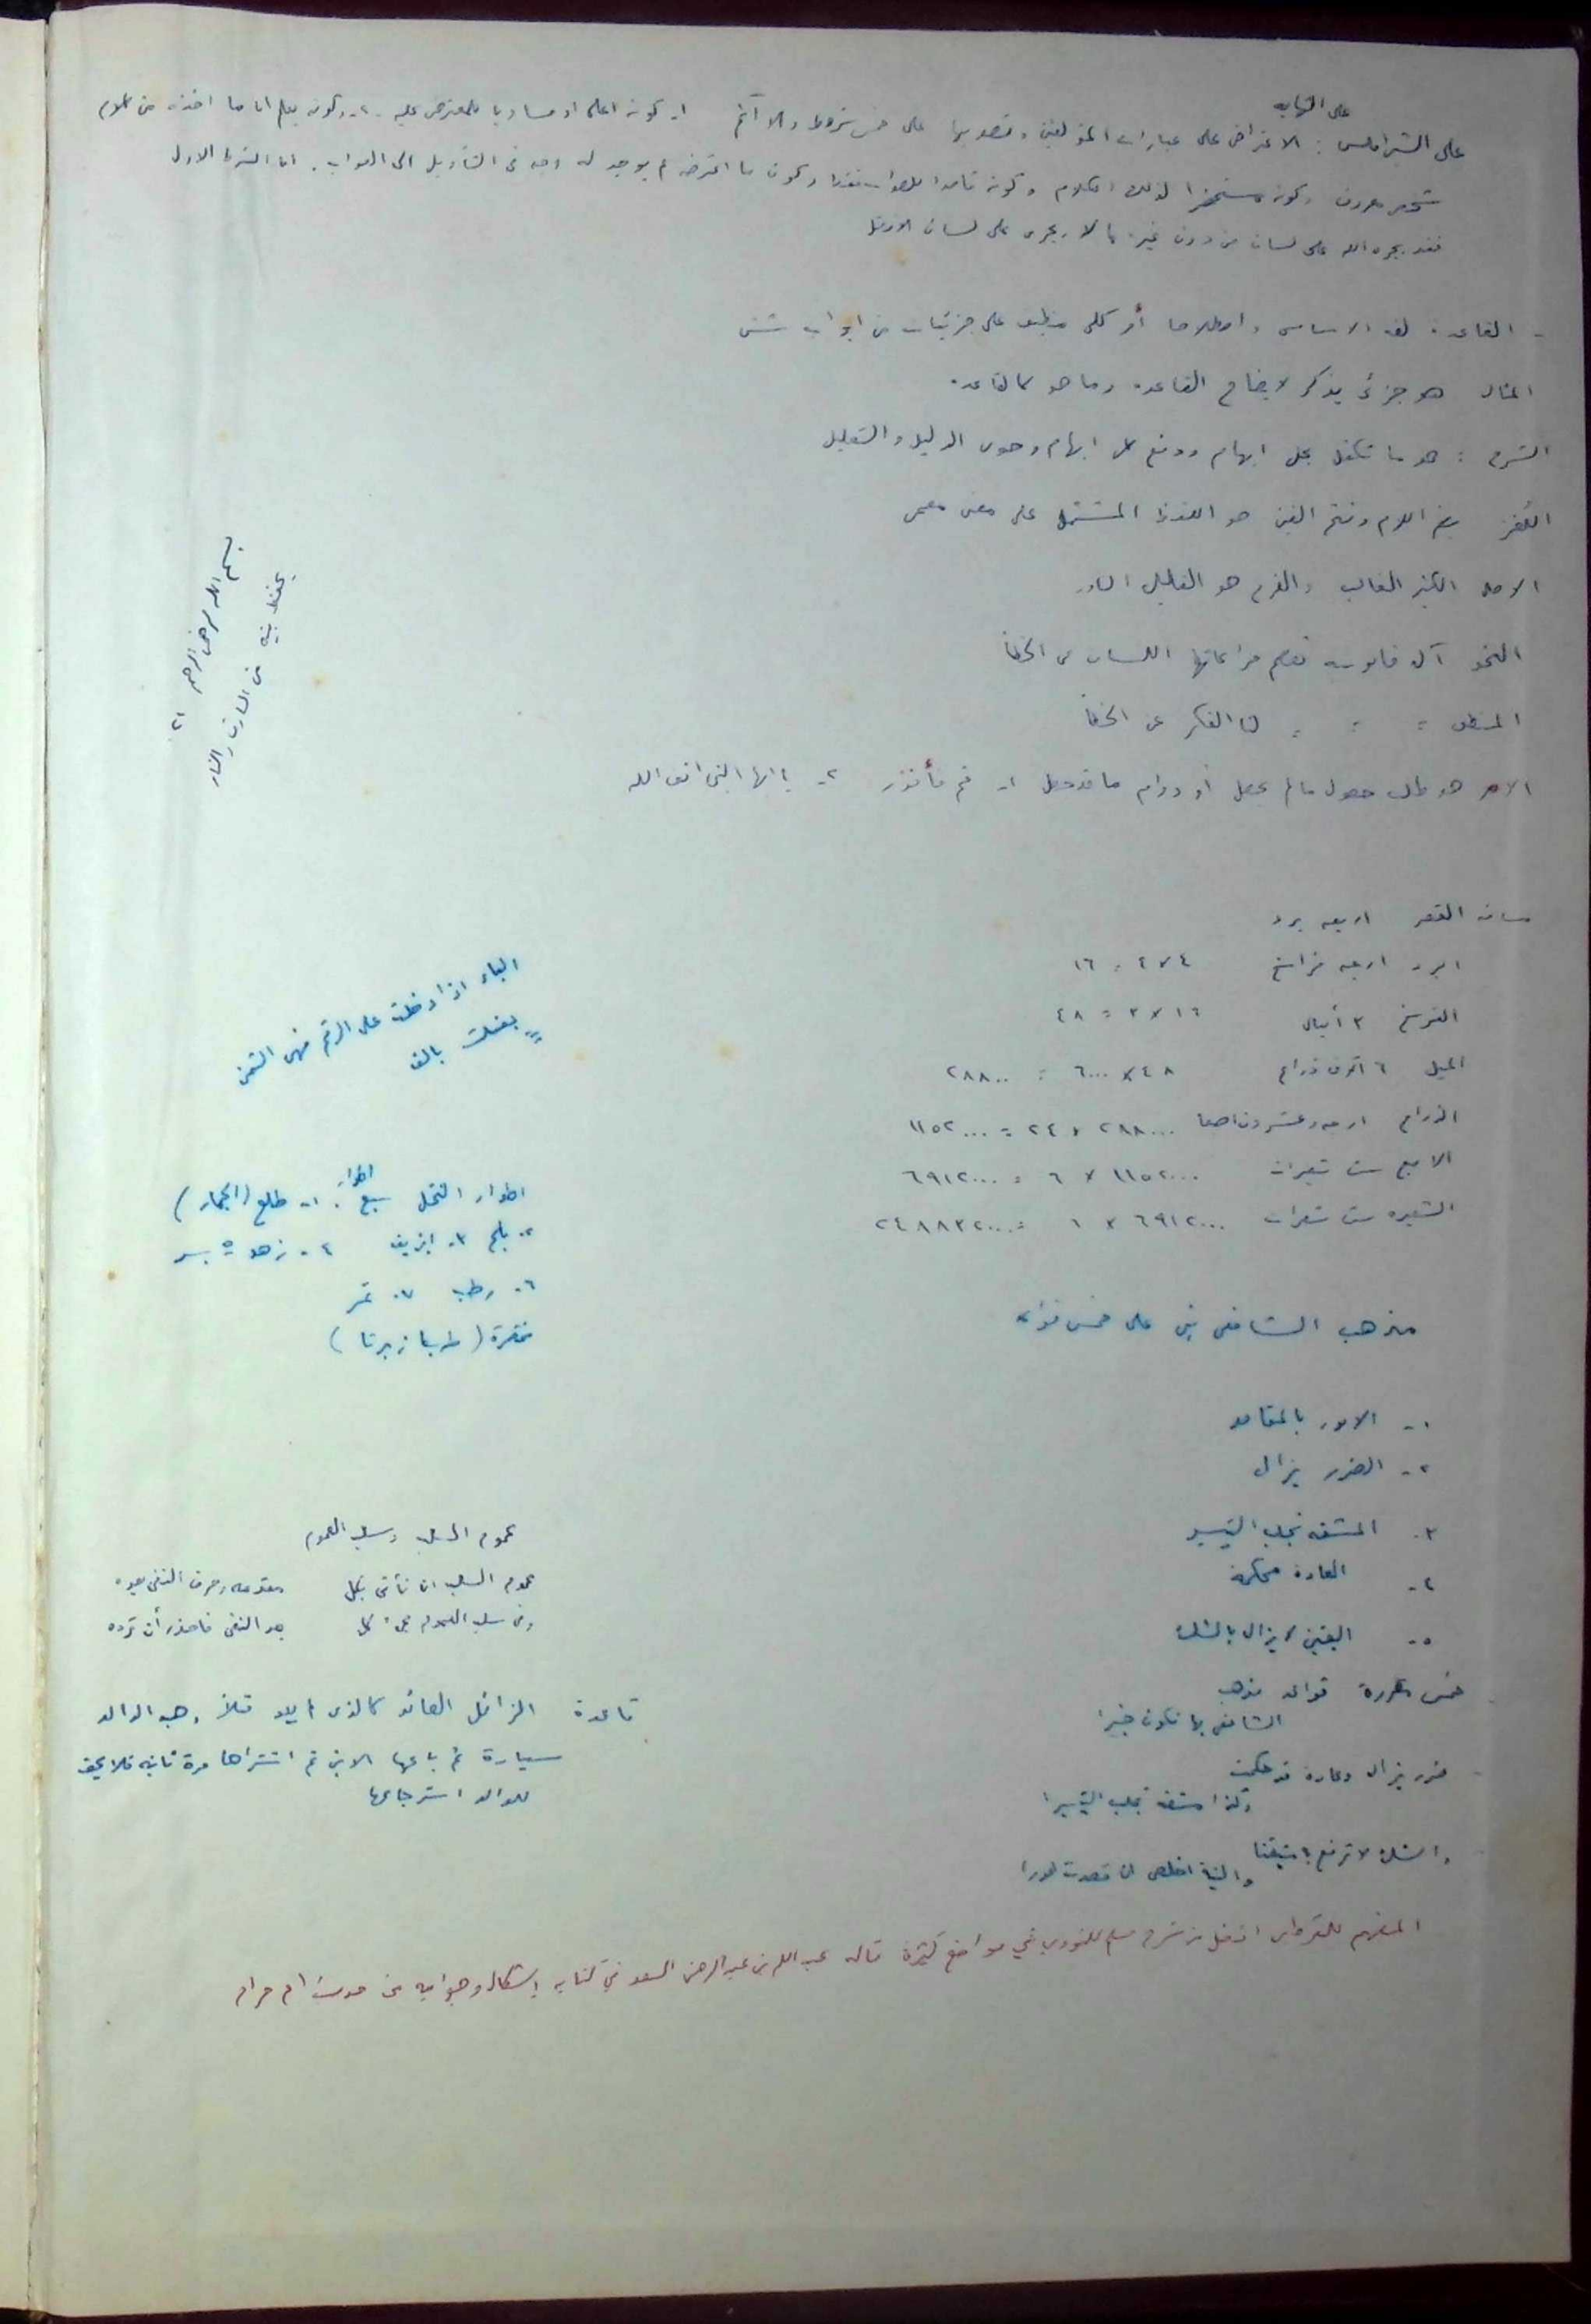 على النهاية
على الشبراملسي : الاعتراض على عبارات المؤلفين وتصويبها على خمس شروط والا آثم ١ـ كونه اعلى او مساويا للمعترض عليه ـ ٢ـ وكونه يعلم ان ما اخذه من كلام
شخص معروف وكونه مستحضرا لذلك الكلام وكونه قاصدا للصواب فقط وكون ما اعترضه لم يوجد له وجه في التأويل الى الصواب . اما الشرط الاول
فقد يجره الله على لسان من دون غيره ما لا يجري على لسان الافضل
ـ القاعدة لغة الاساس واصطلاحا أمر كلي منطبق على جزئيات من ابواب شتى
المثال هو جزئي يذكر لايضاح القاعدة وما هو كالقاعدة
الشرح : هو ما تكفل بحل ابهام ودفع كل ابهام وحوى الدليل والتعليل
اللُغز بضم اللام وفتح الغين هو اللفظ المشتمل على معنى معمى
الاصل الكثير الغالب والفرع هو القليل النادر
النحو آلة قانونية تعصم مراعاتها اللسان عن الخطأ
المنطق = = = الفكر عن الخطأ
الامر هو طلب حصول ما لم يحصل أو دوام ما قد حصل ١ـ قم فأنذر ٢ـ يا ايها النبي اتق الله
بسم الله الرحمن الرحيم ٢١
يحفظ بيته من السارق والنار
مسافة القصر اربعة برد
البرد اربعة فراسخ ٤×٤ = ١٦
الفرسخ ٣ أميال ١٦×٣ = ٤٨
الميل ٦ آلاف ذراع ٤٨×٦٠٠٠ = ٢٨٨٠٠٠
الذراع اربعة وعشرون اصبعا ٢٨٨٠٠٠ × ٢٤ = ٦٩١٢٠٠٠
الاصبع ست شعيرات
الشعيرة ست شعرات
الباء اذا دخلت على الرقم فهي الثمن
= بعتك بالف
اطوار النخل سبع اطوار : ١ـ طلع (الجمار)
٢ـ بلح ٣ـ ٤ـ زهو ٥ـ بسر
٦ـ رطب ٧ـ تمر
مختصرة (طـ با ز بر تا )
مذهب الشافعي بني على خمس قواعد
١ـ الامور بالمقاصد
٢ـ الضرر يزال
٣ـ المشقة تجلب التيسير
٤ـ العادة محكمة
٥ـ اليقين لا يزال بالشك
خمس مقررة قواعد مذهب
الشافعي بها تكون خبيرا
ضرر يزال وعادة قد حكمت
وكذا مشقة تجلب التيسيرا
والشك لا ترفع به متيقنا
والنية اخلص ان قصدت امورا
عموم السلب وسلب العموم
عموم السلب ان تأتي بكل مقدمة وحرف النفي بعده
وفي سلب العموم بكل بعد النفي فاحذر أن ترده
قاعدة الزائل العائد كالذي لم يعد مثلاً وهب الوالد
سيارة ثم باعها الابن ثم اشتراها مرة ثانية فلا يحق
للوالد استرجاعها
المفهم للقرطبي افضل من شرح مسلم للنووي في مواضع كثيرة قاله عبد الله بن عبد الرحمن السعد في كتابه إشكال وجوابه في حديث ام حرام